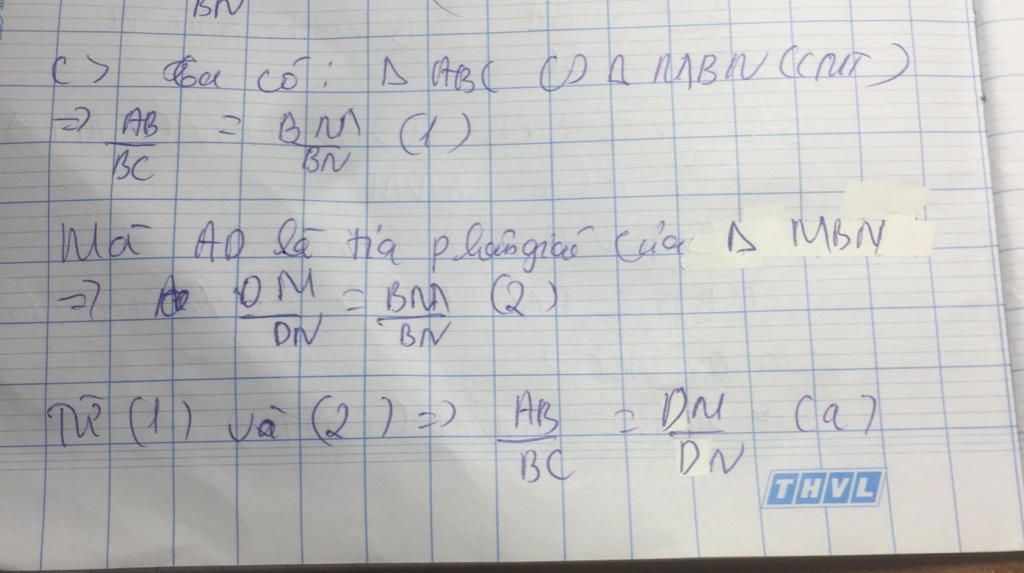 BN
c) Ta có: Δ ABC ∽ Δ MBN (cmt)
=> AB/BC = BM/BN (1)
Mà AD là tia phân giác của Δ MBN
=> DM/DN = BM/BN (2)
Từ (1) và (2) => AB/BC = DM/DN (a)
THVL